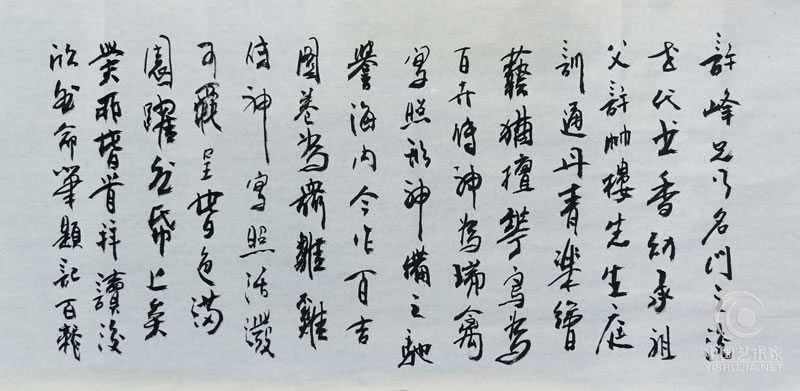 許峰兄乃名門之後
世代書香幼承祖
父許帥樓先生庭
訓通丹青樂繪
藝猶擅翎鳥為
百卉傳神為瑞禽
寫照形神備之馳
譽海内今作百吉
圖卷為衆雛雞
傳神寫照活潑
可
呈
皆色滿
園躍然帋上矣
拜讀後
欣然命筆題記百
中国艺术家
YISHUJIA.NET